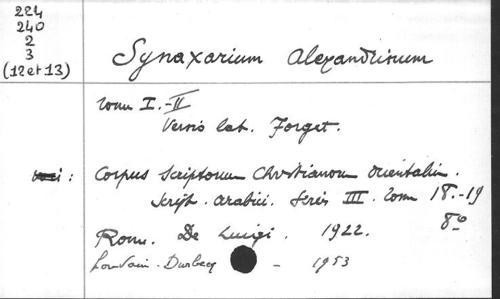 224
240
2
3
(12 et 13)
Synaxarium Alexandrinum
Tom I.-II
Versio lat. Forget.
: Corpus Scriptorum Christianorum Orientalium.
Script. arabici. Series III. Tom 18.-19
Rom. De Luigi. 1922. 8o
Louvain. Durbecq - 1953